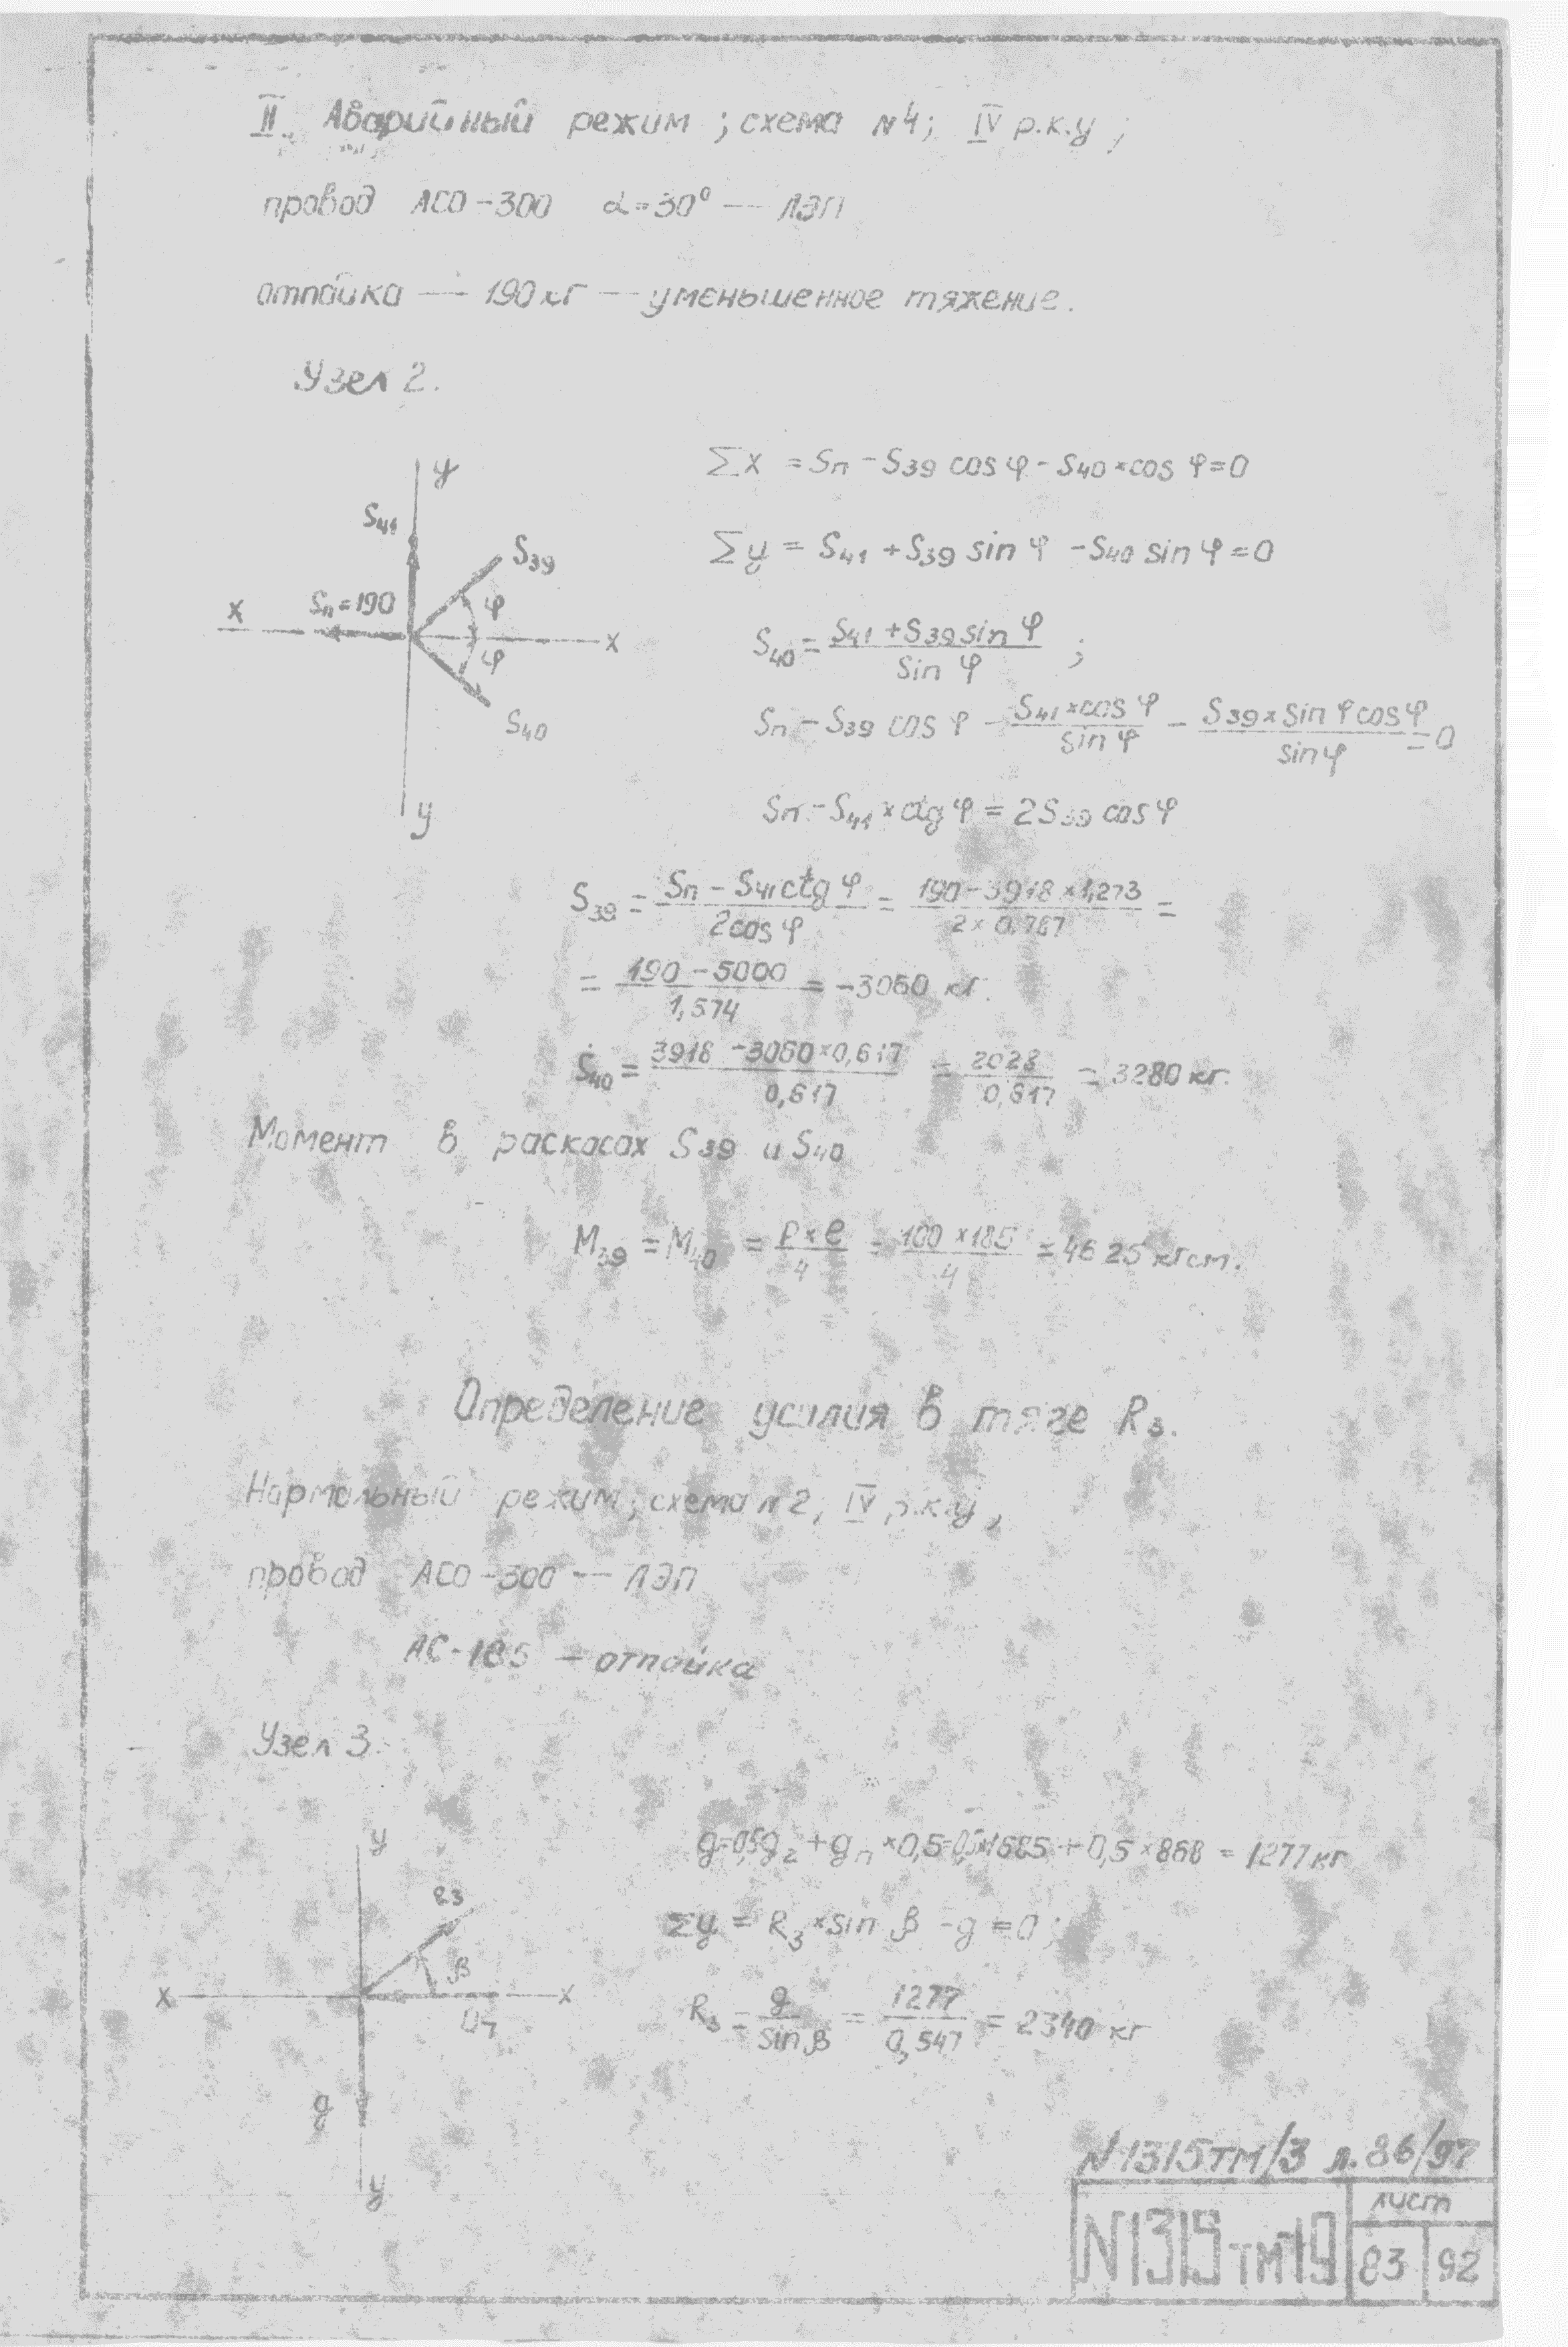 II. Аварийный режим; схема N4; IV р.к.у;
провод АСО-300 α=30° — ЛЭП
отпайка — 190 кг — уменьшенное тяжение.
Узел 2.
y
S41
S39
Sп=190
φ
x
x
φ
S40
y
Σx = Sп - S39 cos φ - S40 × cos φ = 0
Σy = S41 + S39 sin φ - S40 sin φ = 0
S40 = (S41 + S39 sin φ) / sin φ ;
Sп - S39 cos φ - (S41 × cos φ) / sin φ - (S39 × sin φ cos φ) / sin φ = 0
Sп - S41 × ctg φ = 2S39 cos φ
S39 = (Sп - S41 ctg φ) / (2cos φ) = (190 - 3918 × 1,273) / (2 × 0,787) =
= (190 - 5000) / 1,574 = -3060 кг.
S40 = (3918 - 3060 × 0,617) / 0,617 = 2028 / 0,617 = 3280 кг.
Момент в раскосах S39 и S40
M39 = M40 = (P × e) / 4 = (100 × 185) / 4 = 4625 кгсм.
Определение усилия в тяге R3.
Нормальный режим; схема N2; IV р.к.у,
провод АСО-300 — ЛЭП
АС-185 — отпайка
Узел 3.
y
R3
β
x
x
U7
g
y
g=0,5g2 + gп × 0,5=0,5×1685 + 0,5 × 868 = 1277 кг
Σy = R3 × sin β - g = 0;
R3 = g / sin β = 1277 / 0,547 = 2340 кг
N1315тм/3 л. 86/97
N1315тм-19
лист
83 92